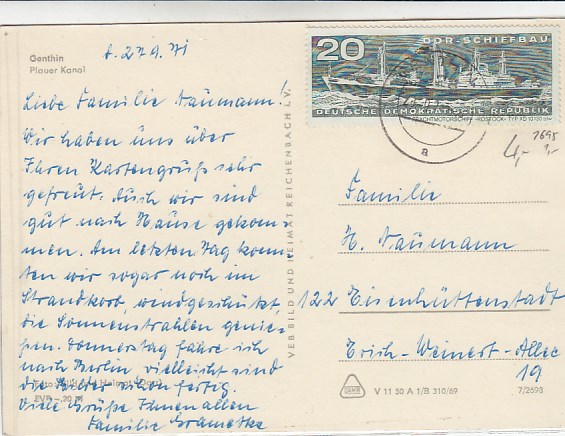 Genthin
Plauer Kanal
d. 27.9.71
Liebe Familie Naumann!
Wir haben uns über
Ihren Kartengruß sehr
gefreut. Auch wir sind
gut nach Hause gekom-
men. Am letzten Tag konn-
ten wir sogar noch im
Strandkorb, windgeschützt,
die Sonnenstrahlen genie-
ßen. Donnerstag fahre ich
nach Berlin, vielleicht sind
die Bilder schon fertig.
Viele Grüße Ihnen allen
Familie
EVP -,20 M
VEB BILD UND HEIMAT REICHENBACH i. V.
20 DDR-SCHIFFBAU
DEUTSCHE DEMOKRATISCHE REPUBLIK
FRACHTMOTORSCHIFF »ROSTOCK« TYP XD
a
1695
4,- 1,-
Familie
H. Naumann
122 Eisenhüttenstadt
Erich-Weinert-Allee
19
V 11 50 A 1/B 310/69
7/2698